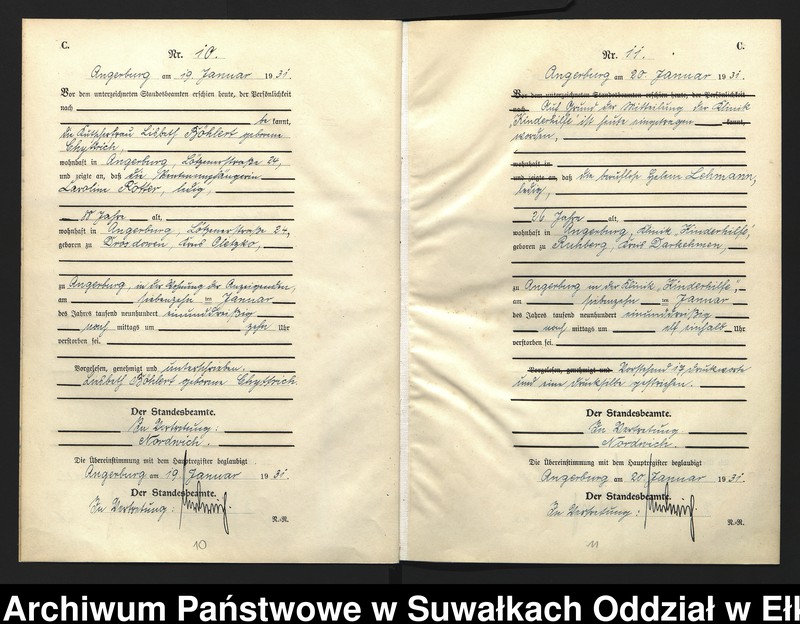 C.
Nr. 10.
Angerburg am 19. Januar 1931.
Vor dem unterzeichneten Standesbeamten erschien heute, der Persönlichkeit
nach
be kannt,
die Kutscherfrau Lisbeth Böhlert geborene
Chyttrich,
wohnhaft in Angerburg, Lötzenerstraße 24,
und zeigte an, daß die Rentenempfängerin
Karoline Rotter, ledig,
Jahre alt,
wohnhaft in Angerburg, Lötzenerstraße 24,
geboren zu Kreis Oletzko,
zu Angerburg in der Wohnung der Anzeigenden,
am siebenzehn ten Januar
des Jahres tausend neunhundert einunddreißig
nach mittags um zehn Uhr
verstorben sei.
Vorgelesen, genehmigt und unterschrieben.
Lisbeth Böhlert geborene Chyttrich.
Der Standesbeamte.
In Vertretung:
Nordwich.
Die Übereinstimmung mit dem Hauptregister beglaubigt
Angerburg am 19. Januar 1931.
Der Standesbeamte.
In Vertretung:
N.-R.
10
C.
Nr. 11.
Angerburg am 20. Januar 1931.
Vor dem unterzeichneten Standesbeamten erschien heute, der Persönlichkeit
nach Auf Grund der Mitteilung der Klinik
"Kinderhilfe" ist heute eingetragen kannt,
worden,
wohnhaft in
und zeigte an, daß die berufslose Helene Lehmann,
ledig,
26 Jahre alt,
wohnhaft in Angerburg, Klinik "Kinderhilfe",
geboren zu Ruhberg, Kreis Darkehmen,
zu Angerburg in der Klinik "Kinderhilfe",
am siebenzehn ten Januar
des Jahres tausend neunhundert einunddreißig
nach mittags um elf einhalb Uhr
verstorben sei.
Vorgelesen, genehmigt und Vorstehend 17 Druckworte
und eine Drucksilbe gestrichen.
Der Standesbeamte.
In Vertretung
Nordwich.
Die Übereinstimmung mit dem Hauptregister beglaubigt
Angerburg am 20. Januar 1931.
Der Standesbeamte.
In Vertretung:
N.-R.
11
Archiwum Państwowe w Suwałkach Oddział w Ełk